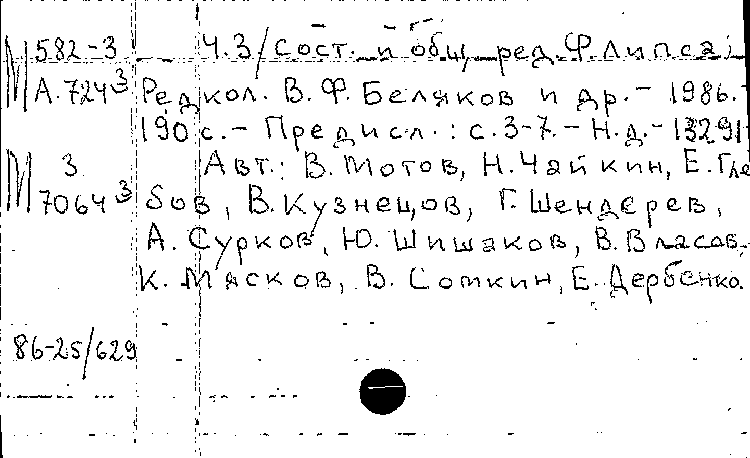 М 582-3
А.724³
М 3
7064³
86-25/629
Ч.3/Сост. и общ. ред. Ф.Липса;
Редкол. В.Ф.Беляков и др.- 1986.-
190 с.- Предисл.: с.3-7.- Н.д.- 13291
Авт.: В.Мотов, Н.Чайкин, Е.Гле
бов, В.Кузнецов, Г.Шендерев,
А.Сурков, Ю.Шишаков, В.Власов,
К.Мясков, В.Соткин, Е.Дербенко.